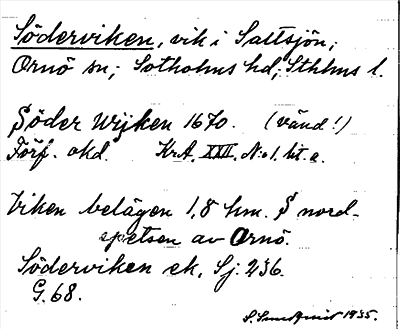 Söderviken, vik i Saltsjön;
Ornö sn; Sotholms hd; Sthlms l.
Söder Wijken 1670. (vänd!)
Förf. okd. KrA. XXII. No 1. lit. a.
Viken belägen 1,8 km. S nord-
spetsen av Ornö.
Söderviken ek. Sj. 236.
G. 68.
S. Sundqvist 1935.